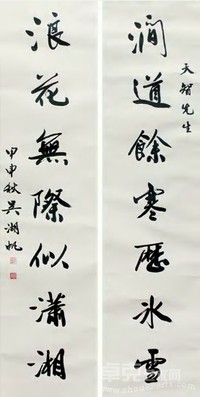 天智先生
澗道餘寒歷冰雪
浪花無際似瀟湘
甲申秋吳湖帆